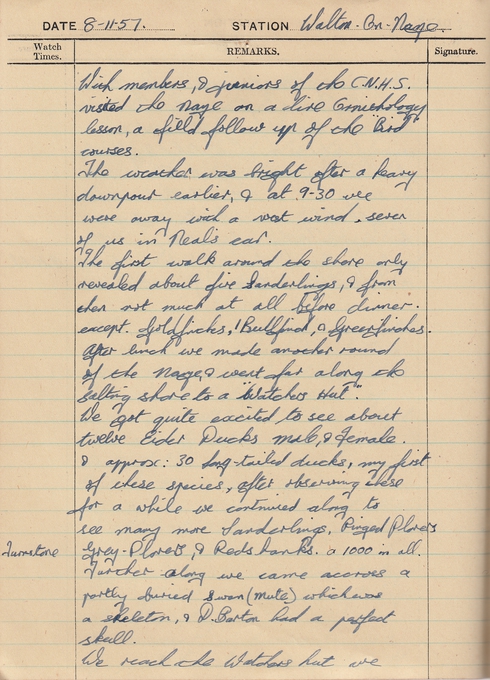 DATE 8-11-57. STATION Walton-On-Naze.
Watch Times. REMARKS. Signature.
With members, & juniors of the C.N.H.S.
visited the Naze on a live Ornithology
lesson, a field follow up of the "Bird"
courses.
The weather was bright after a heavy
downpour earlier, & at 9-30 we
were away with a west wind, seven
of us in Neal's car.
The first walk around the shore only
revealed about five Sanderlings, & from
then not much at all before dinner.
except Goldfinches, 1 Bullfinch, & Greenfinches.
After lunch we made another round
of the Naze, & went far along the
salting shore to a "Watchers Hut".
We got quite excited to see about
twelve Eider Ducks male, & Female.
& approx: 30 long-tailed ducks, my first
of these species, after observing these
for a while we continued along to
see many more Sanderlings, Ringed Plovers
Turnstone Grey-Plovers, & Redshanks. a 1000 in all.
Further along we came accross a
partly buried swan (mute) which was
a skeleton, & D. Barton had a perfect
skull.
We reach the Watchers hut, we